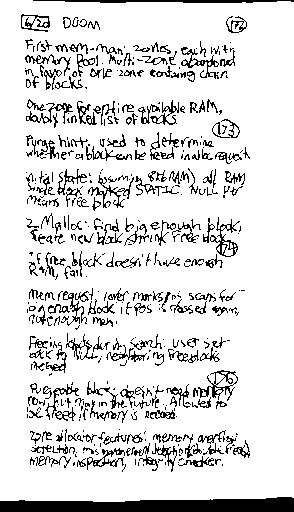 6/20 DOOM 172
First mem-man: zones, each with
memory Pool. Multi-zone abandoned
in favor of one zone containing chain
of blocks.
One zone for entire available RAM,
doubly linked list of blocks
173
Purge hint: used to determine
whether a block can be freed in alloc request
Initial state: (assuming RAM) all RAM
single block marked STATIC. NULL ptr
means free block
Z_Malloc: find big enough block,
create new block, shrink free block
174
If free block doesn't have enough
RAM, fail.
Mem request: rover marks pos, scans for
big enough block if pos is passed again,
not enough mem.
Freeing blocks during search: user set
back to NULL, neighboring free blocks
merged
176
Purgeable block: doesn't need memory
now, but may in the future. Allowed to
be freed if memory is needed.
Zone allocator features: memory overflow
detection, mismanagement detection (double frees),
memory inspection, integrity checker.